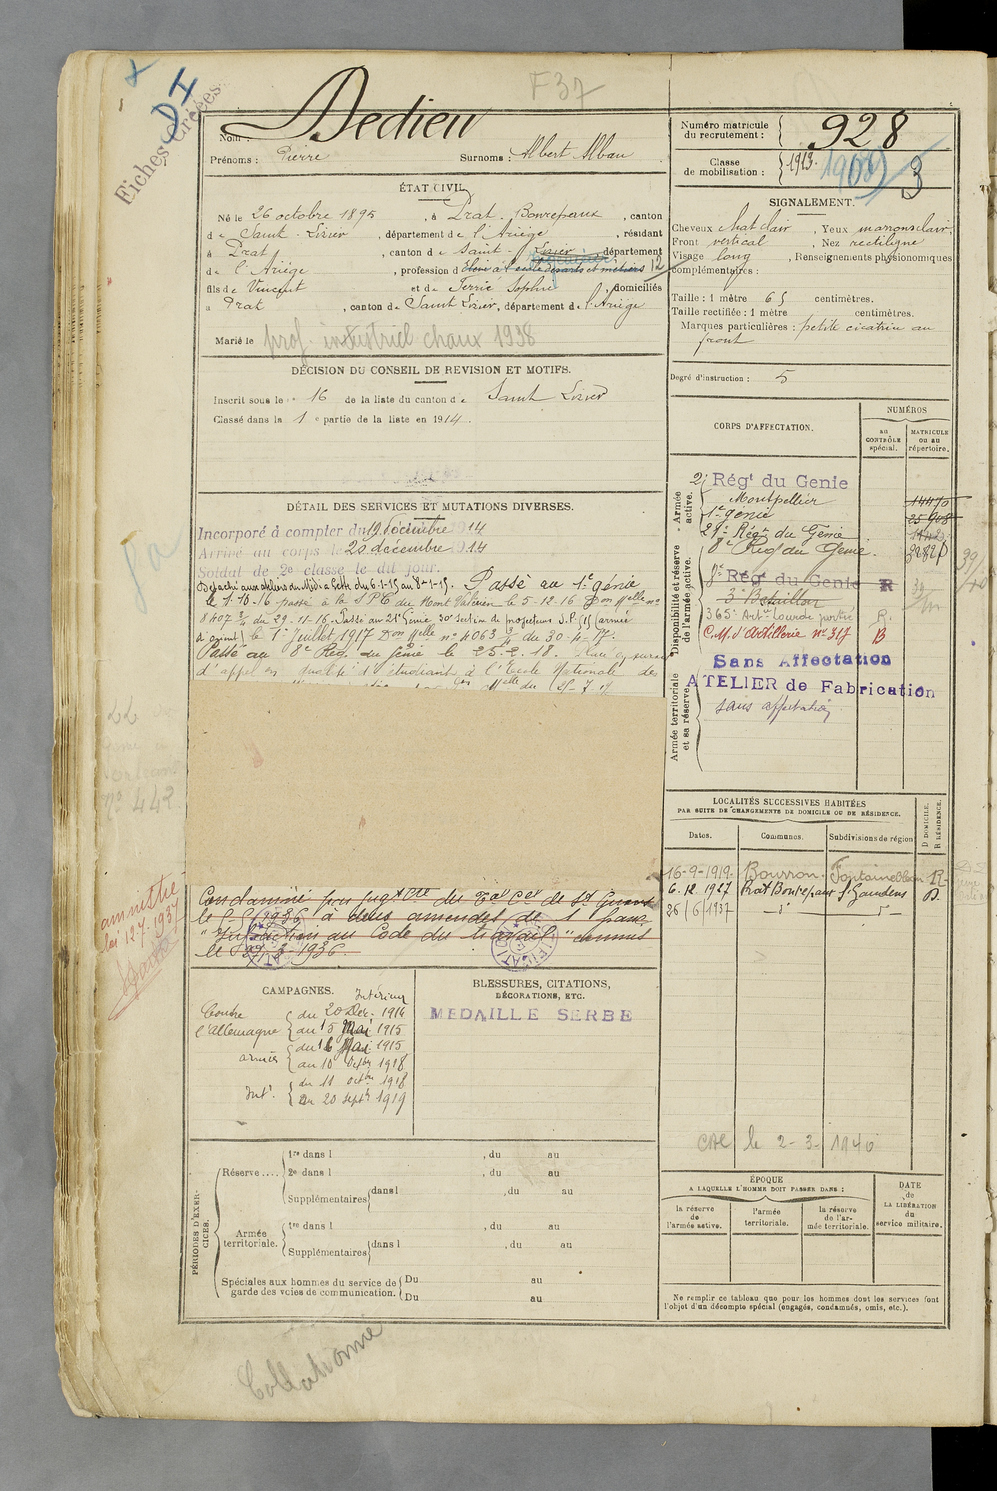 F37
DI
Fiches Créées
Nom : Dedieu
Prénoms : Pierre Surnoms : Albert Alban
Numéro matricule du recrutement : 928
Classe de mobilisation : 1913. 1909 3
ÉTAT CIVIL
Né le 26 octobre 1895, à Prat-Bonrepaux, canton
de Saint-Lizier, département de l'Ariège, résidant
à Prat, canton de Saint Lizier département
de l'Ariège, profession d'élève à l'école des arts et métiers 12
fils de Vincent et de Ferrié Sophie, domiciliés
à Prat, canton de Saint Lizier, département de l'Ariège
Marié le
prof. industriel chaux 1938
SIGNALEMENT.
Cheveux chat clair, Yeux marrons clair,
Front vertical, Nez rectiligne
Visage long, Renseignements physionomiques
complémentaires :
Taille : 1 mètre 65 centimètres.
Taille rectifiée : 1 mètre centimètres.
Marques particulières : petite cicatrice au
front
Degré d'instruction : 5
DÉCISION DU CONSEIL DE REVISION ET MOTIFS.
Inscrit sous le n° 16 de la liste du canton de Saint Lizier
Classé dans la 1e partie de la liste en 1914.
DÉTAIL DES SERVICES ET MUTATIONS DIVERSES.
Incorporé à compter du 19 décembre 1914
Arrivé au corps le 20 décembre 1914
Soldat de 2e classe le dit jour.
Détaché aux ateliers du Midi à Cette du 6-1-15 au 8-1-15. Passé au 1er génie
le 1-10-16 passé à la S.P.C. du Mont Valérien le 5-12-16 Don Melle no
8407 3/4 du 29-11-16. Passé au 21e Génie 30e section de projecteurs S.P. 515 (armée
d'orient) le 1er juillet 1917 Don Melle no 4063 3/4 du 30-4-17.
Passé au 8e Rég. du Génie le 25-2-18. Placé en sursis
d'appel en qualité d'étudiant à l'École Nationale des
Condamné par jugt du
le 1936 à deux amendes de 1 franc
"Infraction au Code du travail" commis
le 1936.
amnistié
loi 12-7-1937
CORPS D'AFFECTATION.
NUMÉROS
au CONTRÔLE spécial.
MATRICULE ou au répertoire.
Armée active.
2e Rég' du Genie
Montpellier
1er génie 25908
21e Régt du Génie
8e Reg du Génie.
Disponibilité et réserve de l'armée active.
8e Régt du Genie R
3e Bataillon
365e Artie Lourde portée R.
C.M. d'Artillerie no 317 B
Sans Affectation
ATELIER de Fabrication
Armée territoriale et sa réserve.
sans affectation
LOCALITÉS SUCCESSIVES HABITÉES
PAR SUITE DE CHANGEMENTS DE DOMICILE OU DE RÉSIDENCE.
Dates. Communes. Subdivisions de région D DOMICILE. R RÉSIDENCE.
16-9-1919. Bourron. Fontainebleau R
6.12.1927 Prat Bonrepaux St Gaudens D.
26/6/1937 -d°-
le 2-3-1940
CAMPAGNES.
Intérieur
Contre l'Allemagne
du 20 Déc. 1914
au 15 Mai 1915
armées
du 16 Mai 1915
au 10 octbre 1918
Int.
du 11 octbre 1918
au 20 septbre 1919
BLESSURES, CITATIONS,
DÉCORATIONS, ETC.
MEDAILLE SERBE
PÉRIODES D'EXERCICES.
Réserve....
1re dans l , du au
2e dans l , du au
Supplémentaires dans l , du au
Armée territoriale.
1re dans l , du au
Supplémentaires dans l , du au
Spéciales aux hommes du service de garde des voies de communication.
Du au
Du au
ÉPOQUE
A LAQUELLE L'HOMME DOIT PASSER DANS :
la réserve de l'armée active.
l'armée territoriale.
la réserve de l'armée territoriale.
DATE de LA LIBÉRATION du service militaire.
Ne remplir ce tableau que pour les hommes dont les services font
l'objet d'un décompte spécial (engagés, condamnés, omis, etc.).
Collationné